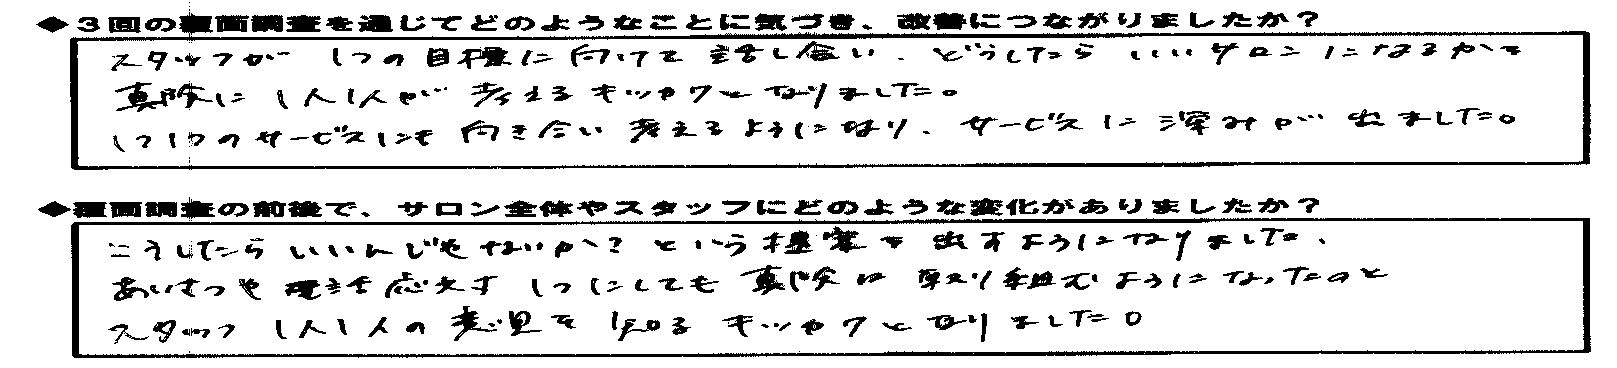 ◆3回の覆面調査を通じてどのようなことに気づき、改善につながりましたか？
スタッフが 1つの目標に向けて話し合い、どうしたらいいサロンになるかを
真険に1人1人が考えるキッカケとなりました。
1つ1つのサービスにも向き合い考えるようになり、サービスに深みが出ました。
◆覆面調査の前後で、サロン全体やスタッフにどのような変化がありましたか？
こうしたらいいんじゃないか？という提案を出すようになりました、
あいさつや電話応対1つにしても真険に取り組むようになったのと
スタッフ1人1人の意見を知るキッカケとなりました。